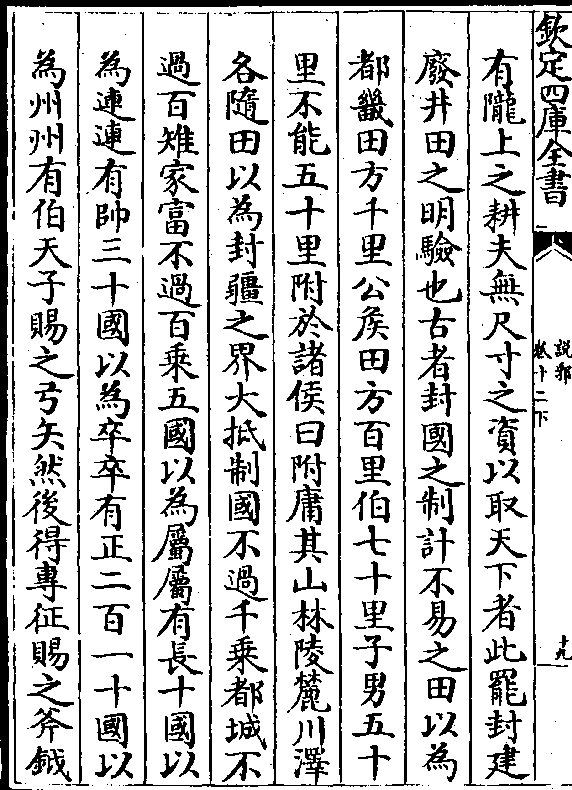 欽定四庫全書
說郛
卷十二下
十九
有隴上之耕夫無尺寸之資以取天下者此罷封建
廢井田之明驗也古者封國之制計不易之田以為
都畿田方千里公侯田方百里伯七十里子男五十
里不能五十里附於諸侯曰附庸其山林陵麓川澤
各隨田以為封疆之界大抵制國不過千乗都城不
過百雉家富不過百乗五國以為屬屬有長十國以
為連連有帥三十國以為卒卒有正二百一十國以
為州州有伯天子賜之弓矢然後得專征賜之斧鉞